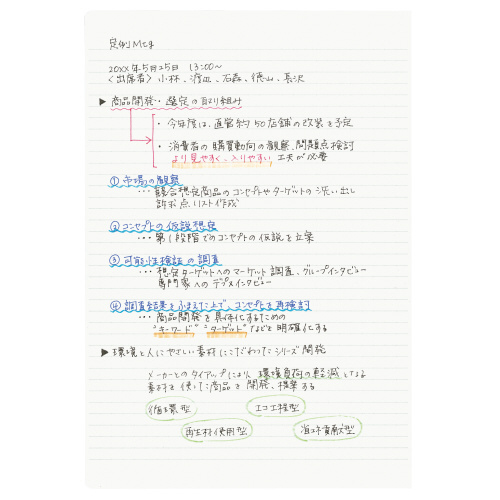 定例Mたき
20XX年5月25日 13:00〜
〈出席者〉小林、渡辺、石森、徳山、長沢
▶ 商品開発・選定の取り組み
・今年度は、直営約50店舗の改装を予定
・消費者の購買動向の観察、問題点検討
より見やすく、入りやすい 工夫が必要
① 市場の観察
・・・競合想定商品のコンセプトやターゲットの洗い出し
訴求点リスト作成
② コンセプトの仮説想定
・・・第1段階でのコンセプトの仮説を立案
③ 可能性検証の調査
・・・想定ターゲットへのマーケット調査、グループインタビュー
専門家へのデプスインタビュー
④ 調査結果をふまえた上で、コンセプトを再検討
・・・商品開発を具体化するための
"キーワード" "ターゲット"などを明確化する
▶ 環境と人にやさしい素材にこだわったシリーズ開発
メーカーとのタイアップにより、環境負荷の軽減となる
素材を使った商品を開発、提案する
循環型 エコ工程型
再生材使用型 省エネ貢献型